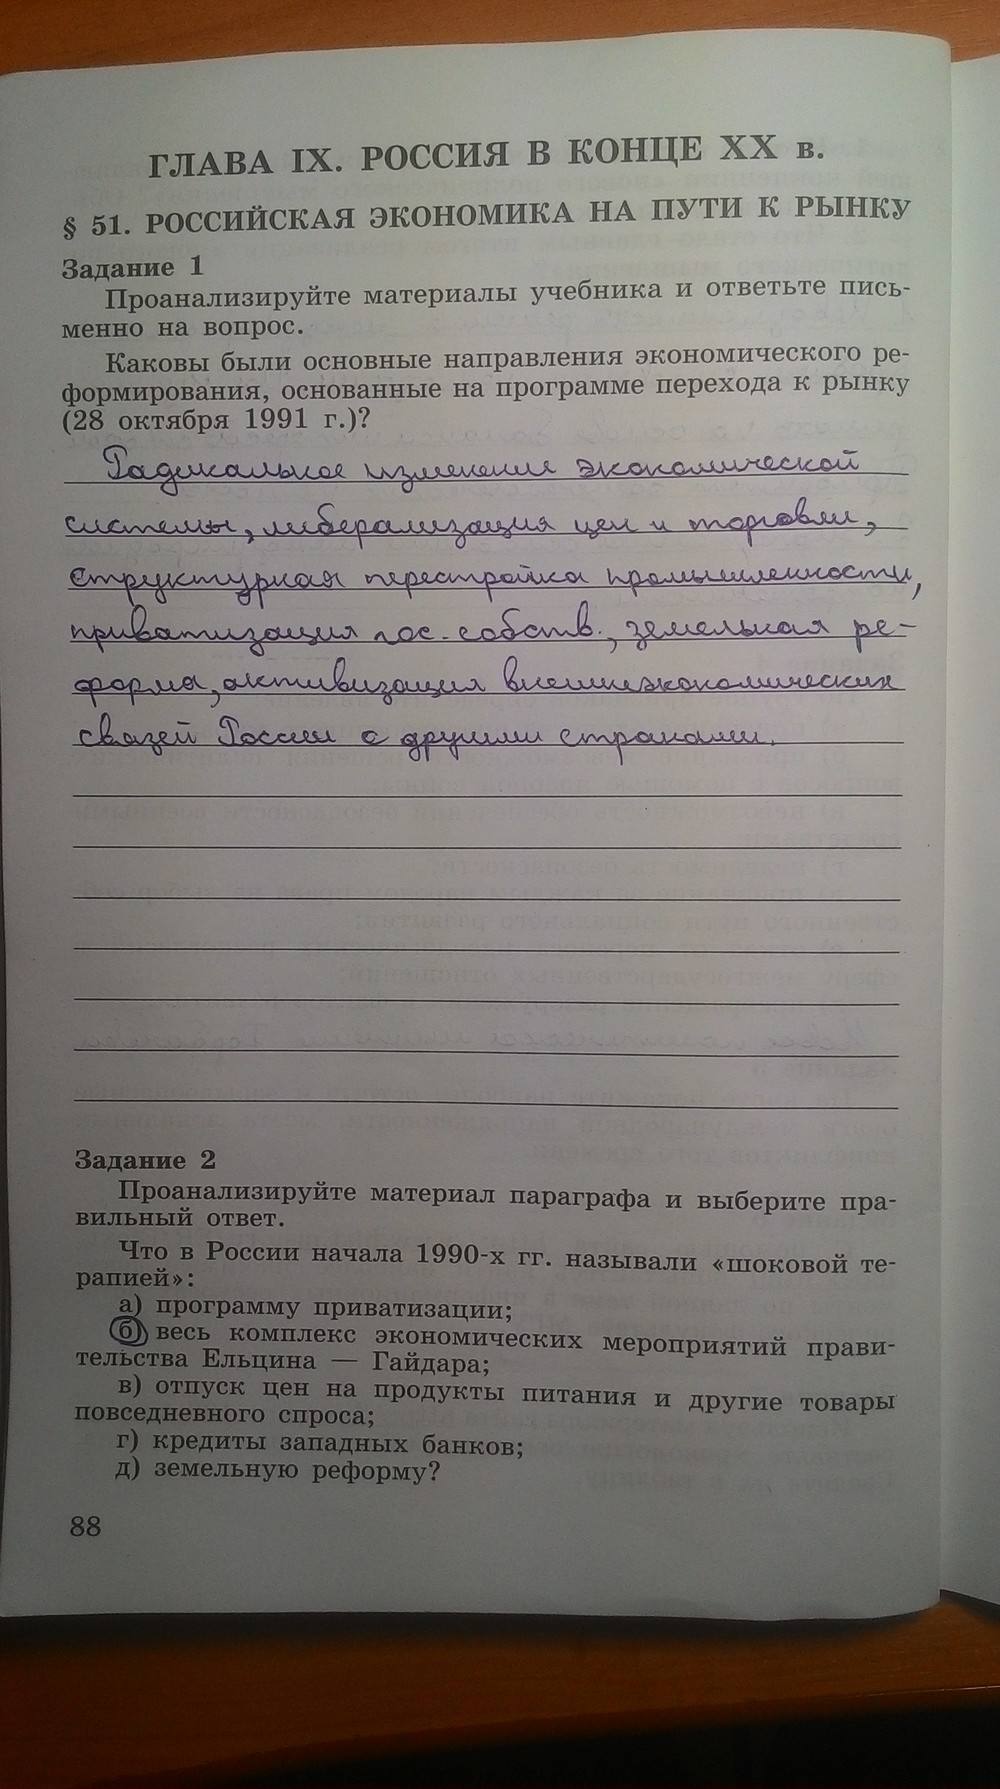 ГЛАВА IX. РОССИЯ В КОНЦЕ XX в.
§ 51. РОССИЙСКАЯ ЭКОНОМИКА НА ПУТИ К РЫНКУ
Задание 1
Проанализируйте материалы учебника и ответьте пись-
менно на вопрос.
Каковы были основные направления экономического ре-
формирования, основанные на программе перехода к рынку
(28 октября 1991 г.)?
Радикальное изменение экономической
системы, либерализация цен и торговли,
структурная перестройка промышленности,
приватизация гос. собств., земельная ре-
форма, активизация внешнеэкономических
связей России с другими странами.
Задание 2
Проанализируйте материал параграфа и выберите пра-
вильный ответ.
Что в России начала 1990-х гг. называли «шоковой те-
рапией»:
а) программу приватизации;
б) весь комплекс экономических мероприятий прави-
тельства Ельцина — Гайдара;
в) отпуск цен на продукты питания и другие товары
повседневного спроса;
г) кредиты западных банков;
д) земельную реформу?
88